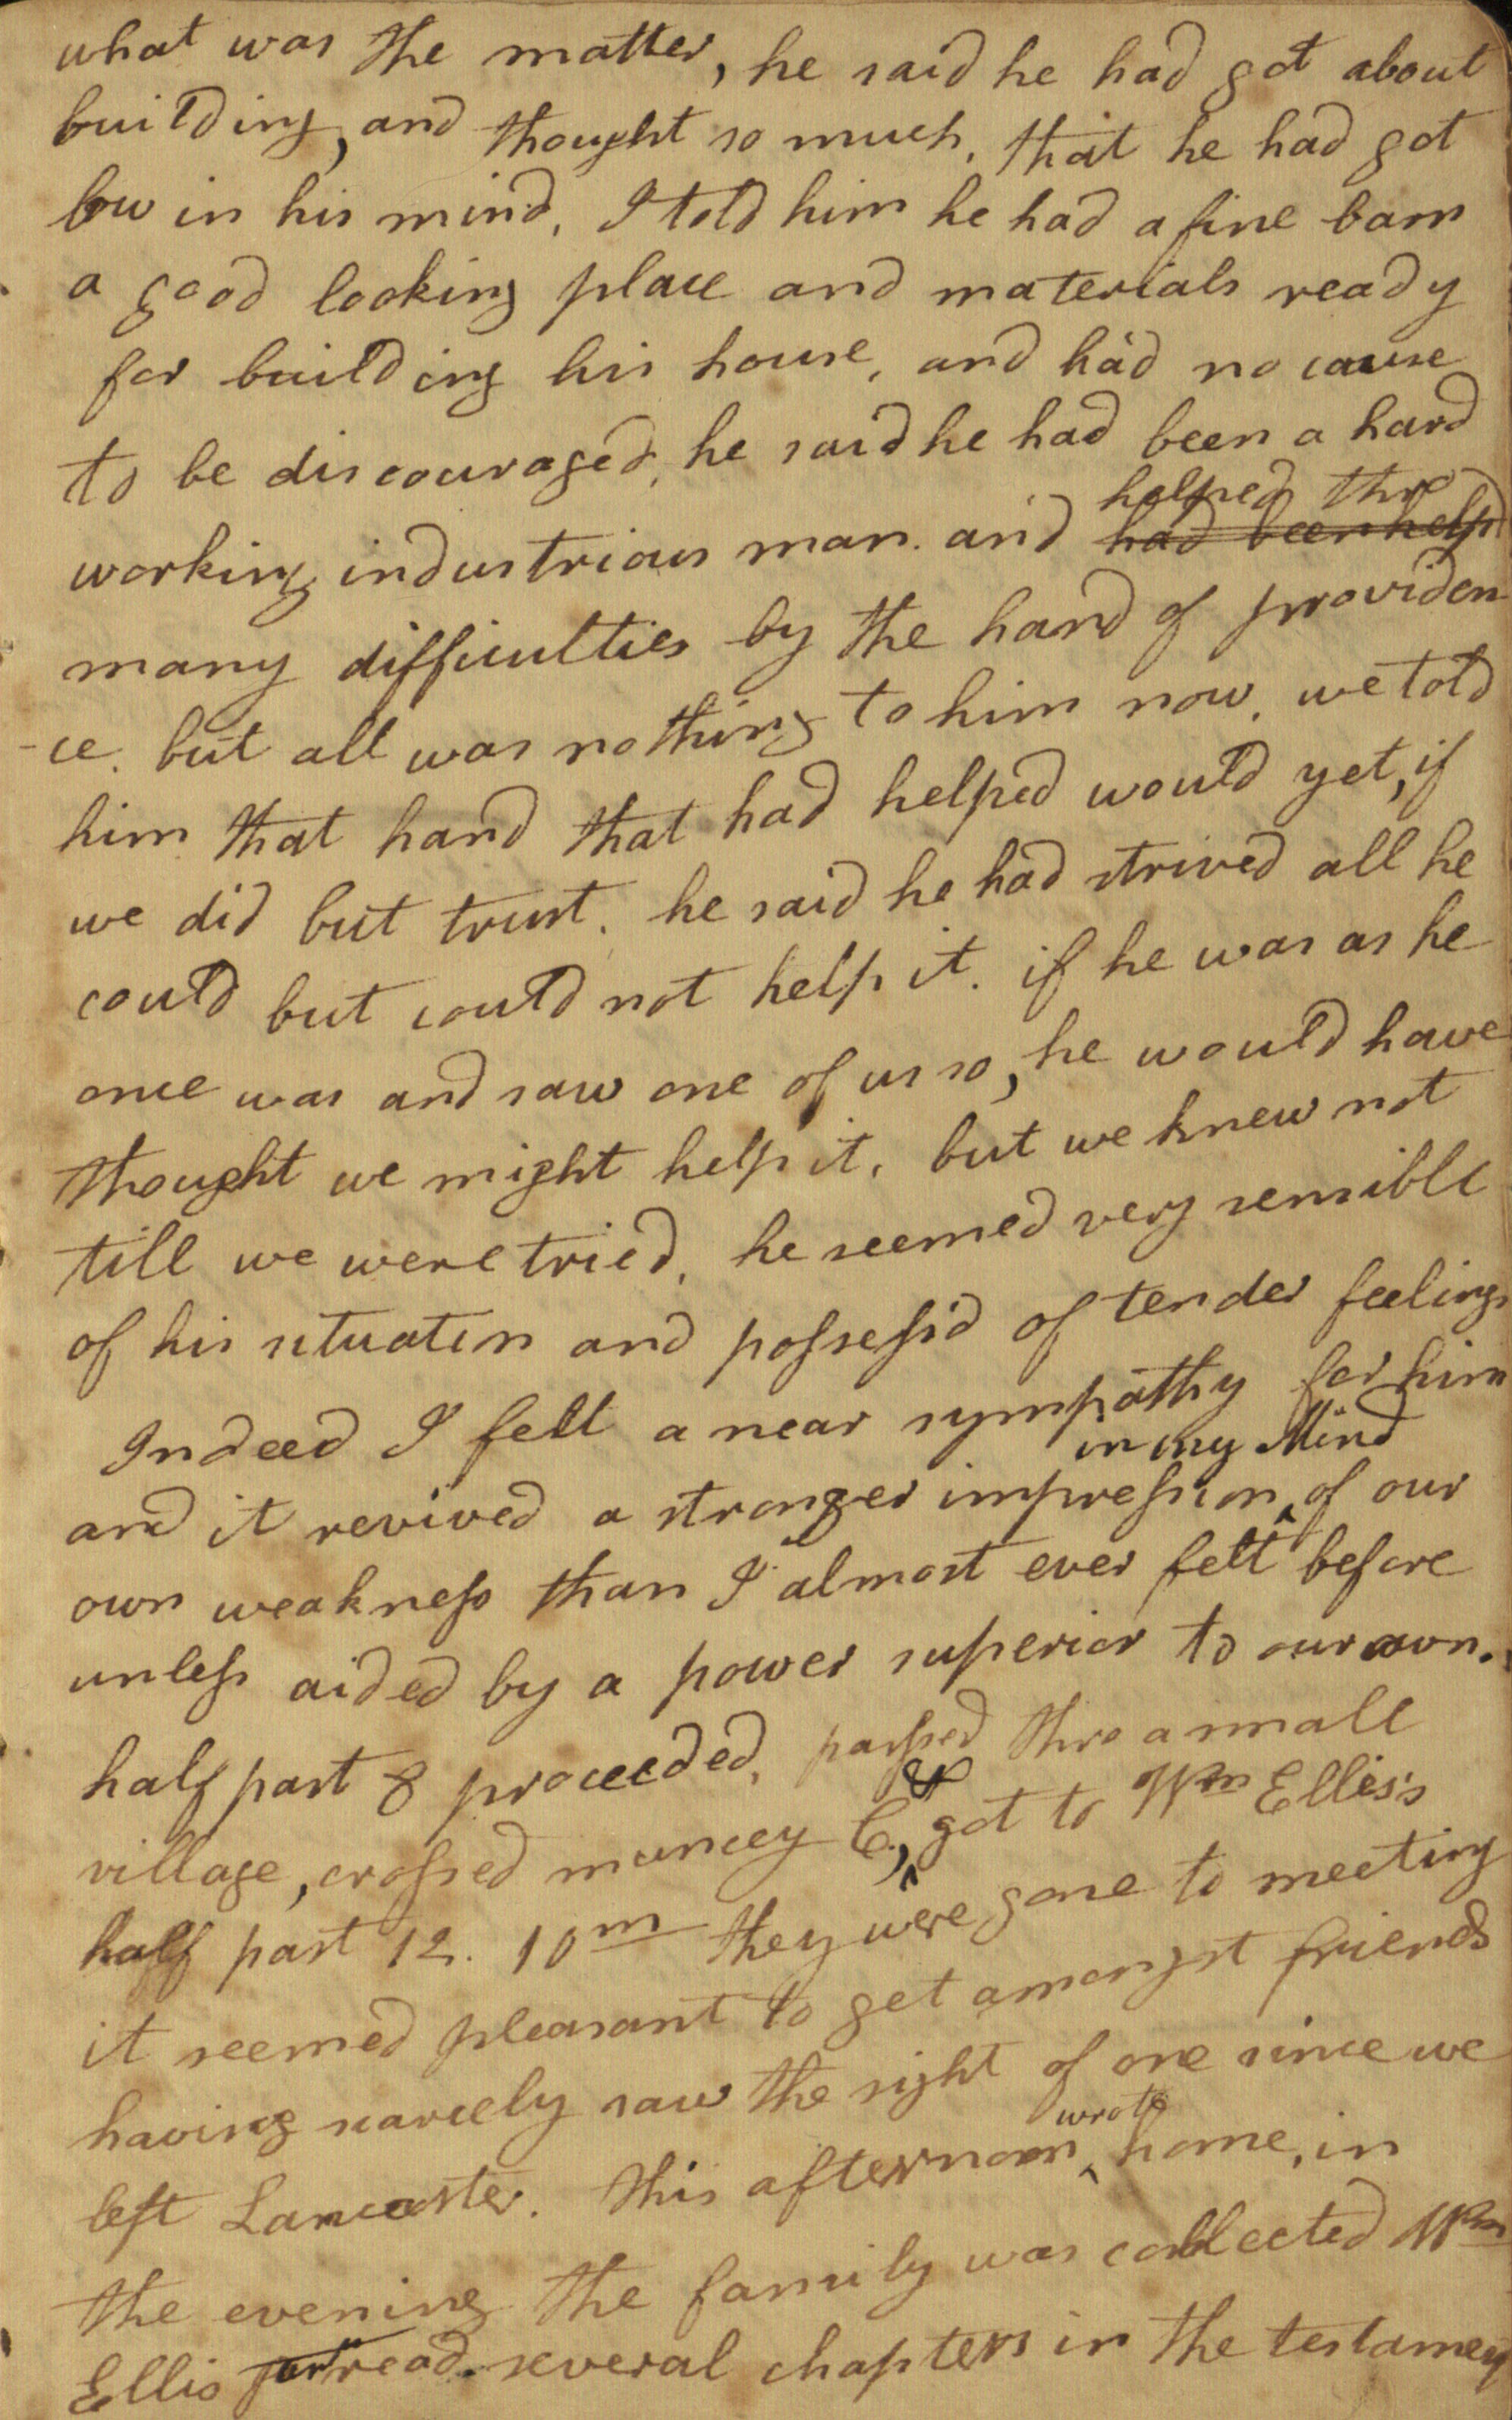 what was the matter, he said he had got about
building, and thought so much, that he had got
low in his mind, I told him he had a fine barn
a good looking place and materials ready
for building his house, and had no cause
to be discouraged, he said he had been a hard
helped thro
working industrious man. and had been help'd
many difficulties by the hand of providen
-ce. but all was nothing to him now. we told
him that hand that had helped would yet, if
we did but trust. he said he had strived all he
could but could not help it. if he was as he
once was and saw one of us so, he would have
thought we might help it, but we knew not
till we were tried, he seemed very sensible
of his situation and possess'd of tender feelings
Indeed I felt a near sympathy for him
in my Mind
and it revived a stronger impression ^ of our
own weakness than I almost ever felt before
unless aided by a power superior to our own.
half past 8 proceeded, passed thro a small
&
village, crossed muncey C, ^ got to Wm Ellis's
half past 12. 10m they were gone to meeting
it seemed pleasant to get amongst friends
having scarcely saw the sight of one since we
wrote
left Lancaster. this afternoon ^ home, in
the evening the family was collected Wm
Ellis read several chapters in the testamen